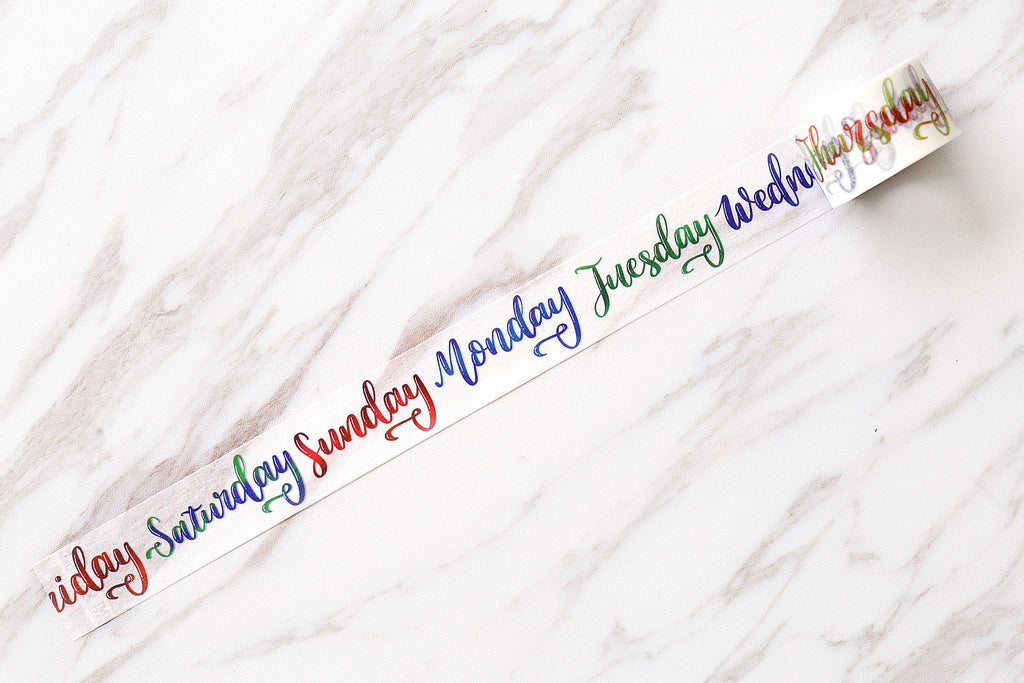 riday Saturday Sunday Monday Tuesday Wedn Thursday